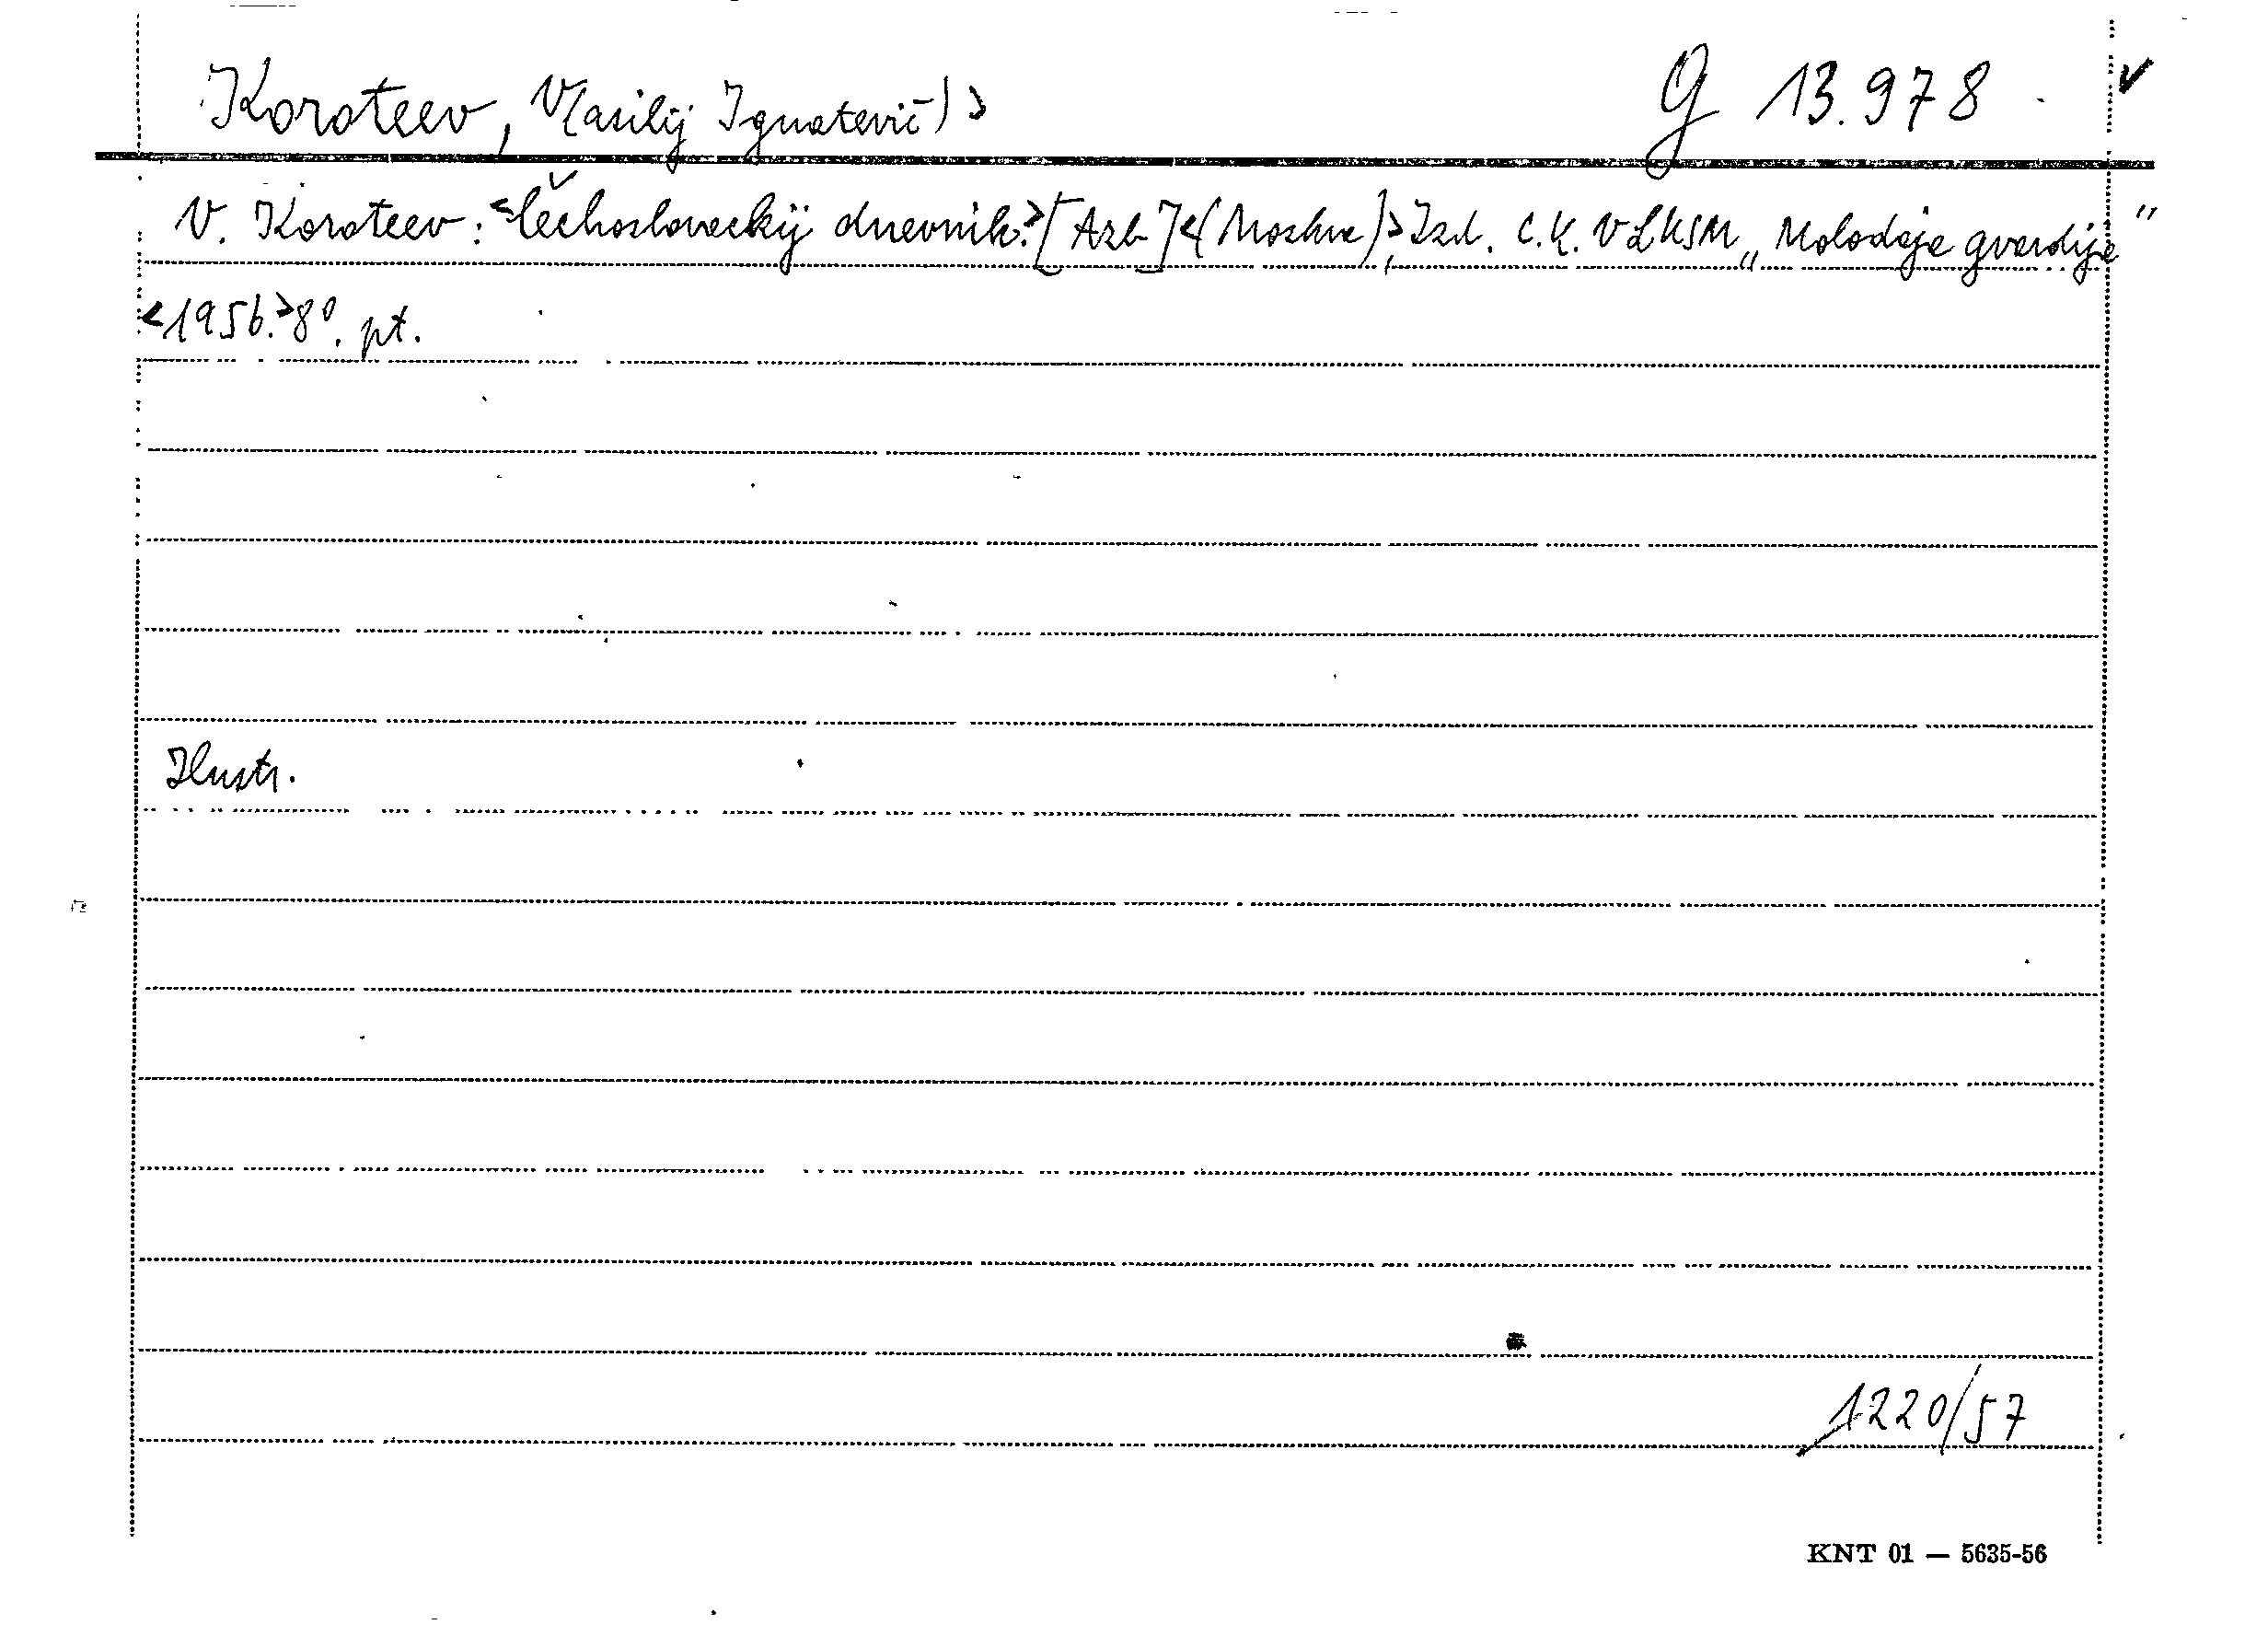 Koroteev, V(asilij Ignatevič)> G 13.978 ✓
V. Koroteev: <Čechosloveckij dnevnik.> [Azb.] <(Moskva),> Izd. C.K. VLKSM „Molodaja gvardija"
<1956.> 8°. pt.
Ilustr.
1220/57
KNT 01 — 5635-56